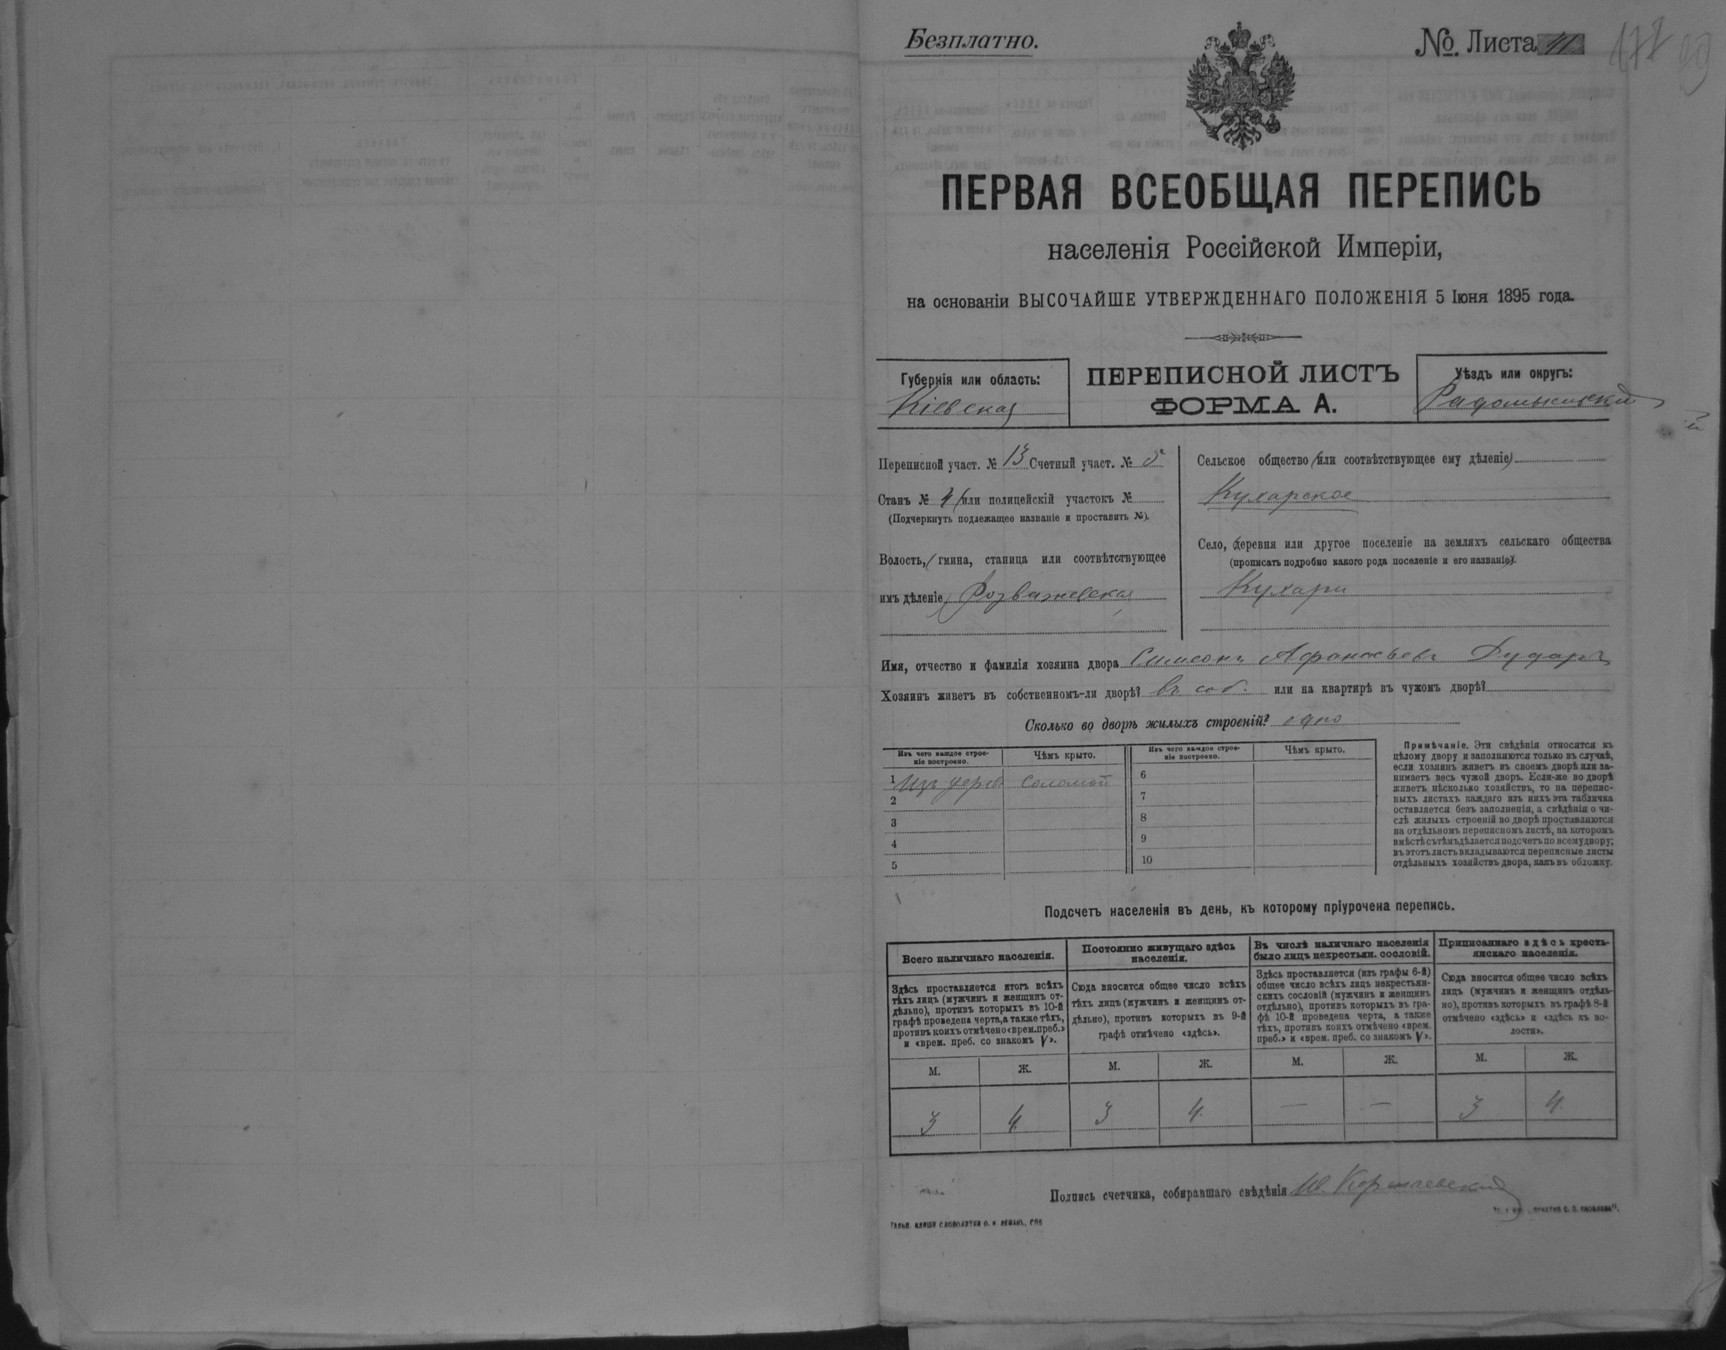 Безплатно.
№ Листа 11
ПЕРВАЯ ВСЕОБЩАЯ ПЕРЕПИСЬ
населенія Россійской Имперіи,
на основаніи ВЫСОЧАЙШЕ УТВЕРЖДЕННАГО ПОЛОЖЕНІЯ 5 Іюня 1895 года.
Губернія или область:
Кіевская
ПЕРЕПИСНОЙ ЛИСТЪ
ФОРМА А.
Уѣздъ или округъ:
Радомысский
Переписной участ. № 13 Счетный участ. №
Станъ № 4 или полицейскій участокъ №
(Подчеркнуть подлежащее названіе и проставить №).
Волость, гмина, станица или соотвѣтствующее
имъ дѣленіе Розважевская
Сельское общество (или соотвѣтствующее ему дѣленіе)
Кухарское
Село, (деревня или другое поселеніе на земляхъ сельскаго общества
(прописать подробно какого рода поселеніе и его названіе).
Кухари
Имя, отчество и фамилія хозяина двора Симеонъ Афанасьевъ Дударъ
Хозяинъ живетъ въ собственномъ-ли дворѣ? въ соб. или на квартирѣ въ чужомъ дворѣ?
Сколько во дворѣ жилыхъ строеній? одно
Изъ чего каждое строе-
ніе построено.
Чѣмъ крыто.
Изъ чего каждое строе-
ніе построено.
Чѣмъ крыто.
1 Изъ дерев Соломой
2
3
4
5
6
7
8
9
10
Примѣчаніе. Эти свѣдѣнія относятся къ
цѣлому двору и заполняются только въ случаѣ,
если хозяинъ живетъ въ своемъ дворѣ или за-
нимаетъ весь чужой дворъ. Если-же во дворѣ
живетъ нѣсколько хозяйствъ, то на перепис-
ныхъ листахъ каждаго изъ нихъ эта табличка
оставляется безъ заполненія, а свѣдѣнія о чи-
слѣ жилыхъ строеній во дворѣ проставляются
на отдѣльномъ переписномъ листѣ, на которомъ
вмѣстѣ съ тѣмъ дѣлается подсчетъ по всему двору;
въ этотъ листъ вкладываются переписные листы
отдѣльныхъ хозяйствъ двора, какъ въ обложку.
Подсчетъ населенія въ день, къ которому пріурочена перепись.
Всего наличнаго населенія.
Здѣсь проставляется итогъ всѣхъ
тѣхъ лицъ (мужчинъ и женщинъ от-
дѣльно), противъ которыхъ въ 10-й
графѣ проведена черта, а также тѣхъ,
противъ коихъ отмѣчено «врем. преб.»
и «врем. преб. со знакомъ V».
Постоянно живущаго здѣсь
населенія.
Сюда вносится общее число всѣхъ
тѣхъ лицъ (мужчинъ и женщинъ от-
дѣльно), противъ которыхъ въ 9-й
графѣ отмѣчено «здѣсь».
Въ числѣ наличнаго населенія
было лицъ некрестьян. сословій.
Здѣсь проставляется (изъ графы 6-й)
общее число всѣхъ лицъ некрестьян-
скихъ сословій (мужчинъ и женщинъ
отдѣльно), противъ которыхъ въ гра-
фѣ 10-й проведена черта, а также
тѣхъ, противъ коихъ отмѣчено «врем.
преб.» и «врем. преб. со знакомъ V».
Приписаннаго здѣсь кресть-
янскаго населенія.
Сюда вносится общее число всѣхъ
лицъ (мужчинъ и женщинъ отдѣль-
но), противъ которыхъ въ графѣ 8-й
отмѣчено «здѣсь» и «здѣсь къ во-
лости».
М. Ж. М. Ж. М. Ж. М. Ж.
3 4 3 4 — — 3 4
Подпись счетчика, собиравшаго свѣдѣнія